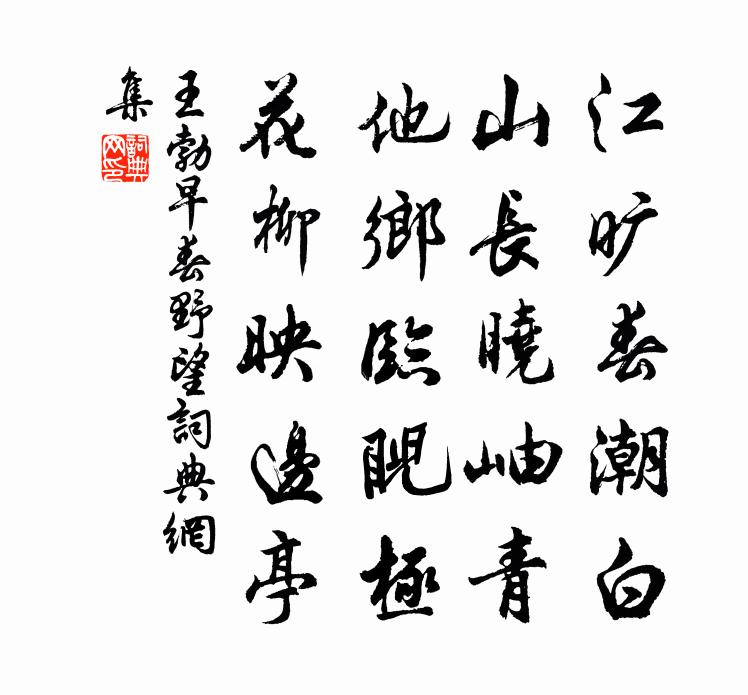 江旷春潮白
山長曉岫青
他鄉臨睨極
花柳映邊亭
王勃早春野望詞典網
集
詞典
网印